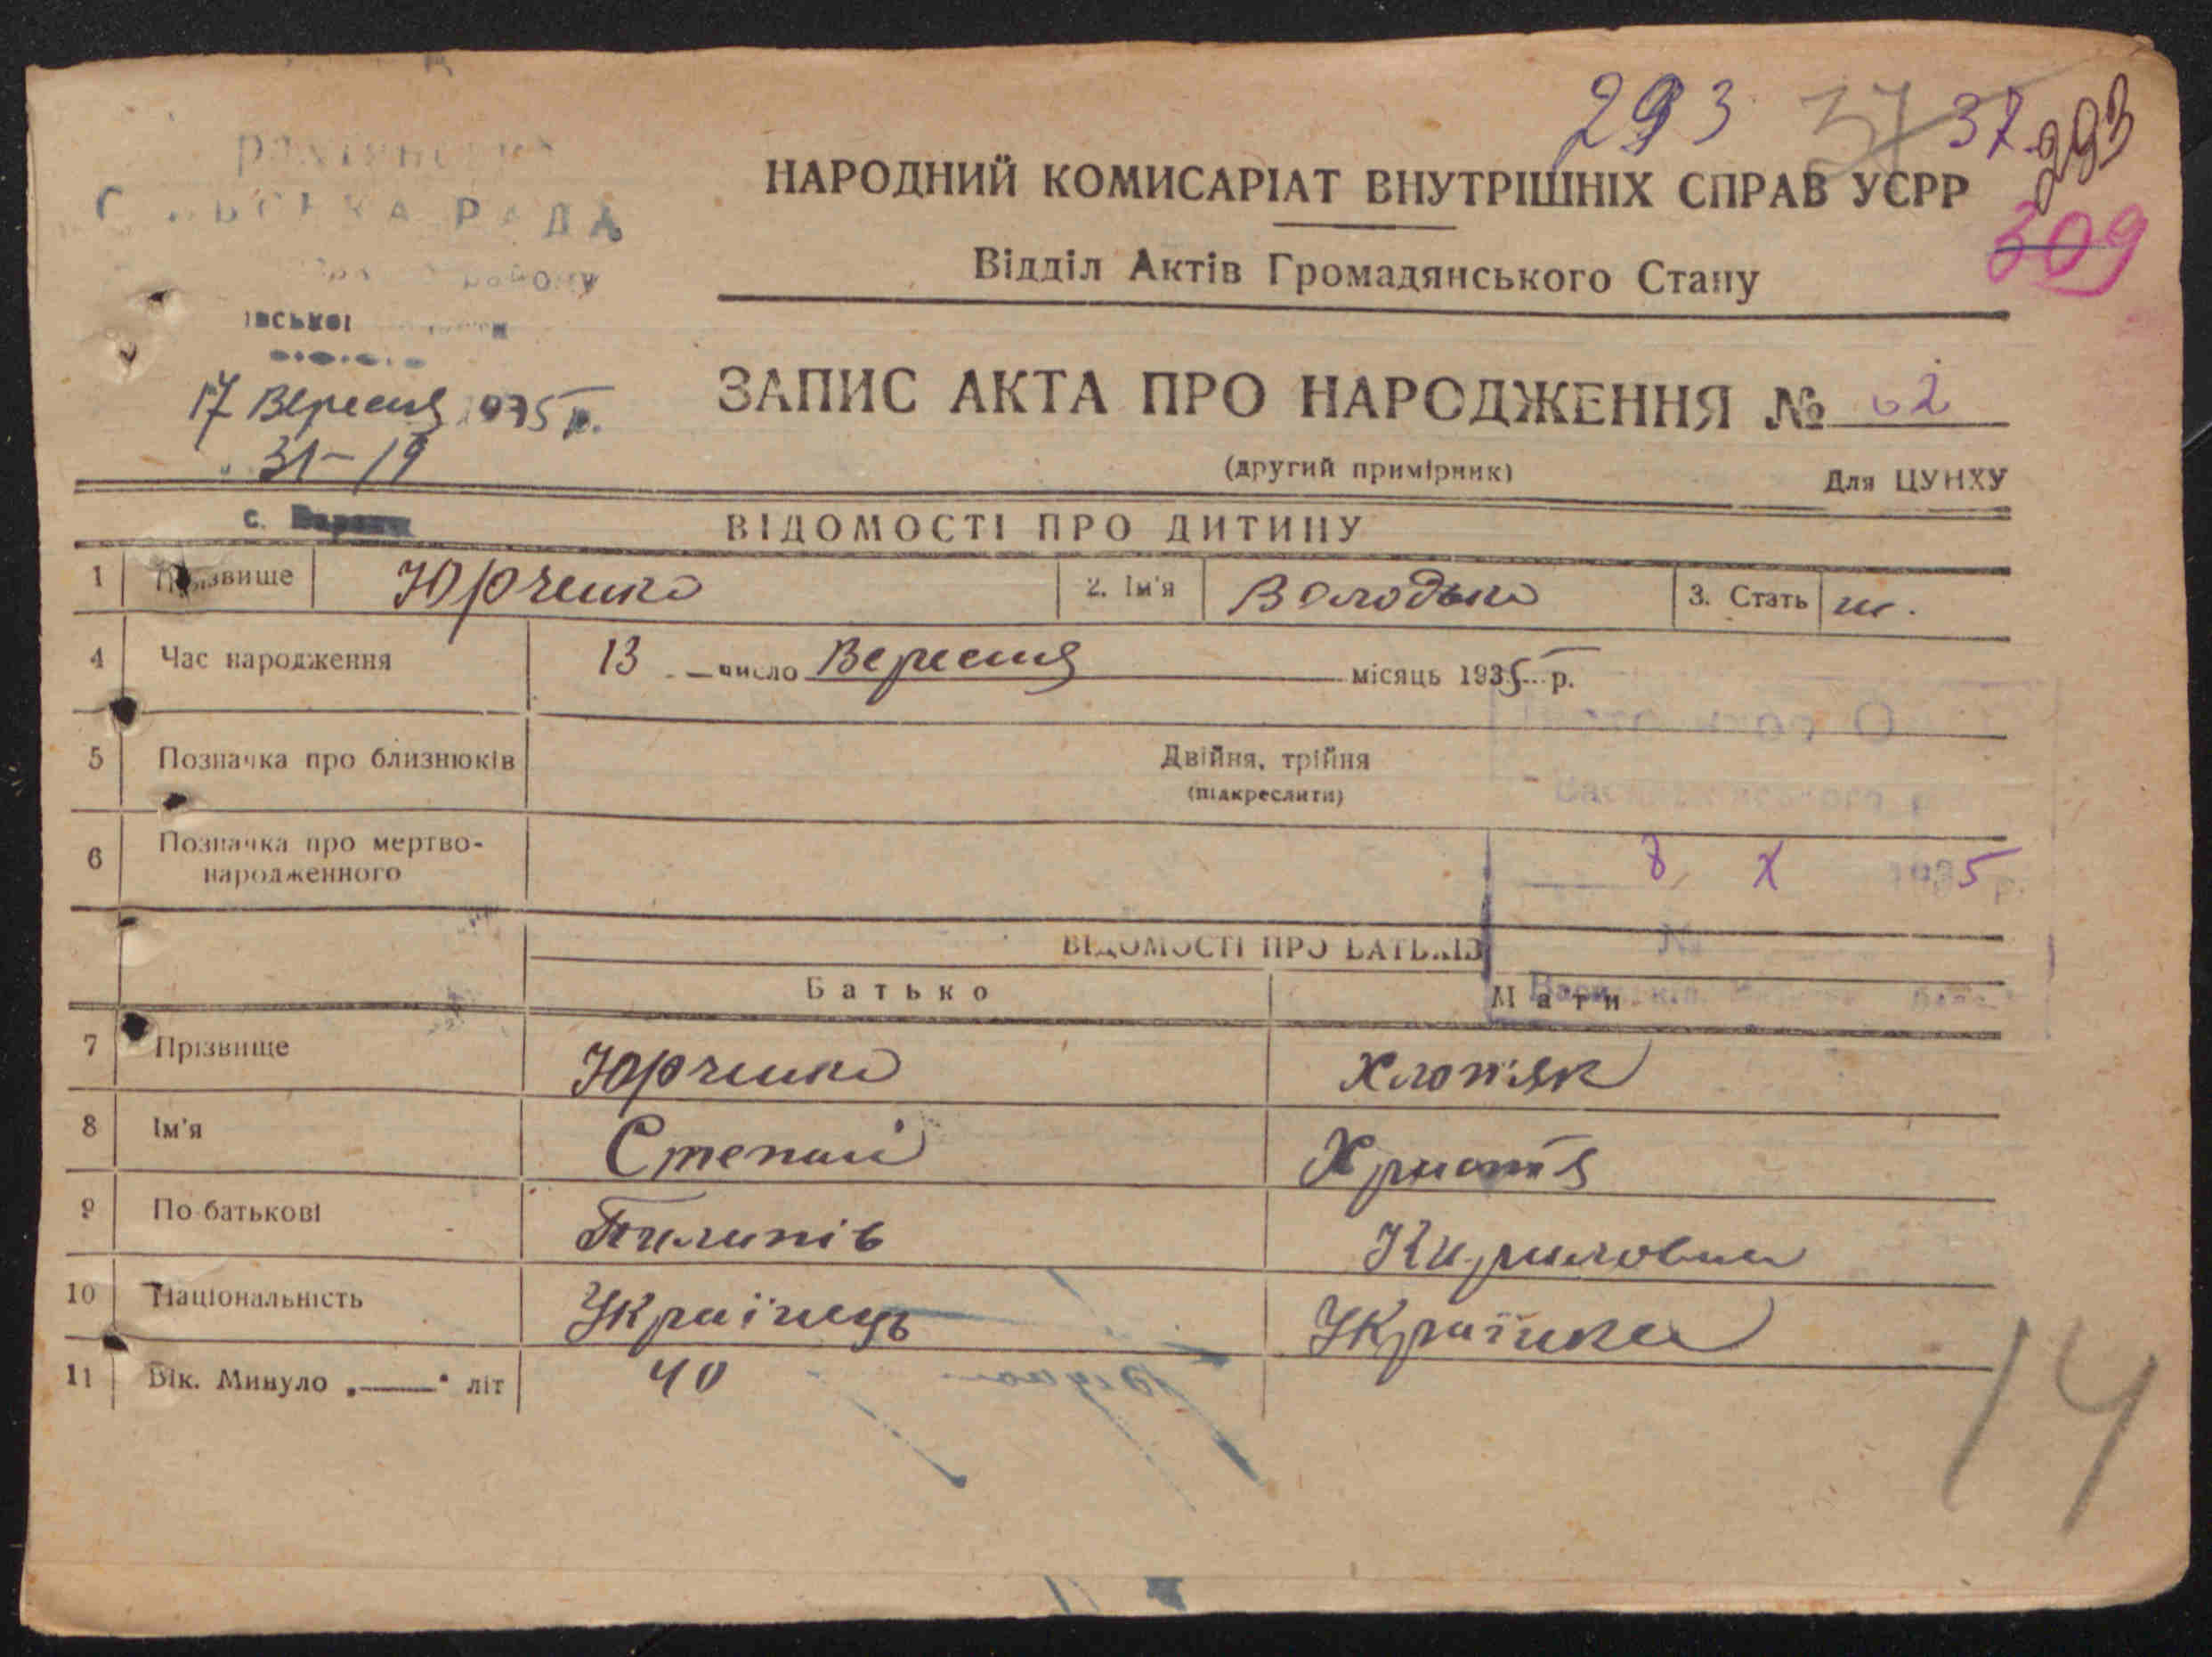 293 37 37 293
РАДА
НАРОДНИЙ КОМИСАРІАТ ВНУТРІШНІХ СПРАВ УСРР
309
Відділ Актів Громадянського Стану
17 Вересня 1935 р.
31-19
ЗАПИС АКТА ПРО НАРОДЖЕННЯ № 62
(другий примірник) Для ЦУНХУ
с.
ВІДОМОСТІ ПРО ДИТИНУ
1 Прізвище Юрченко 2. Ім'я Володько 3. Стать
4 Час народження 13 число Вересня місяць 1935 р.
5 Позначка про близнюків Двійня, трійня
(підкреслити)
6 Позначка про мертво-
народженного
8 X 1935 р.
№
ВІДОМОСТІ ПРО БАТЬКІВ
Батько Мати
7 Прізвище Юрченко Хлопяк
8 Ім'я Степан Христя
9 По батькові Пилипів Кириловна
10 Національність Українець Українка
11 Вік. Минуло „——“ літ 40
14